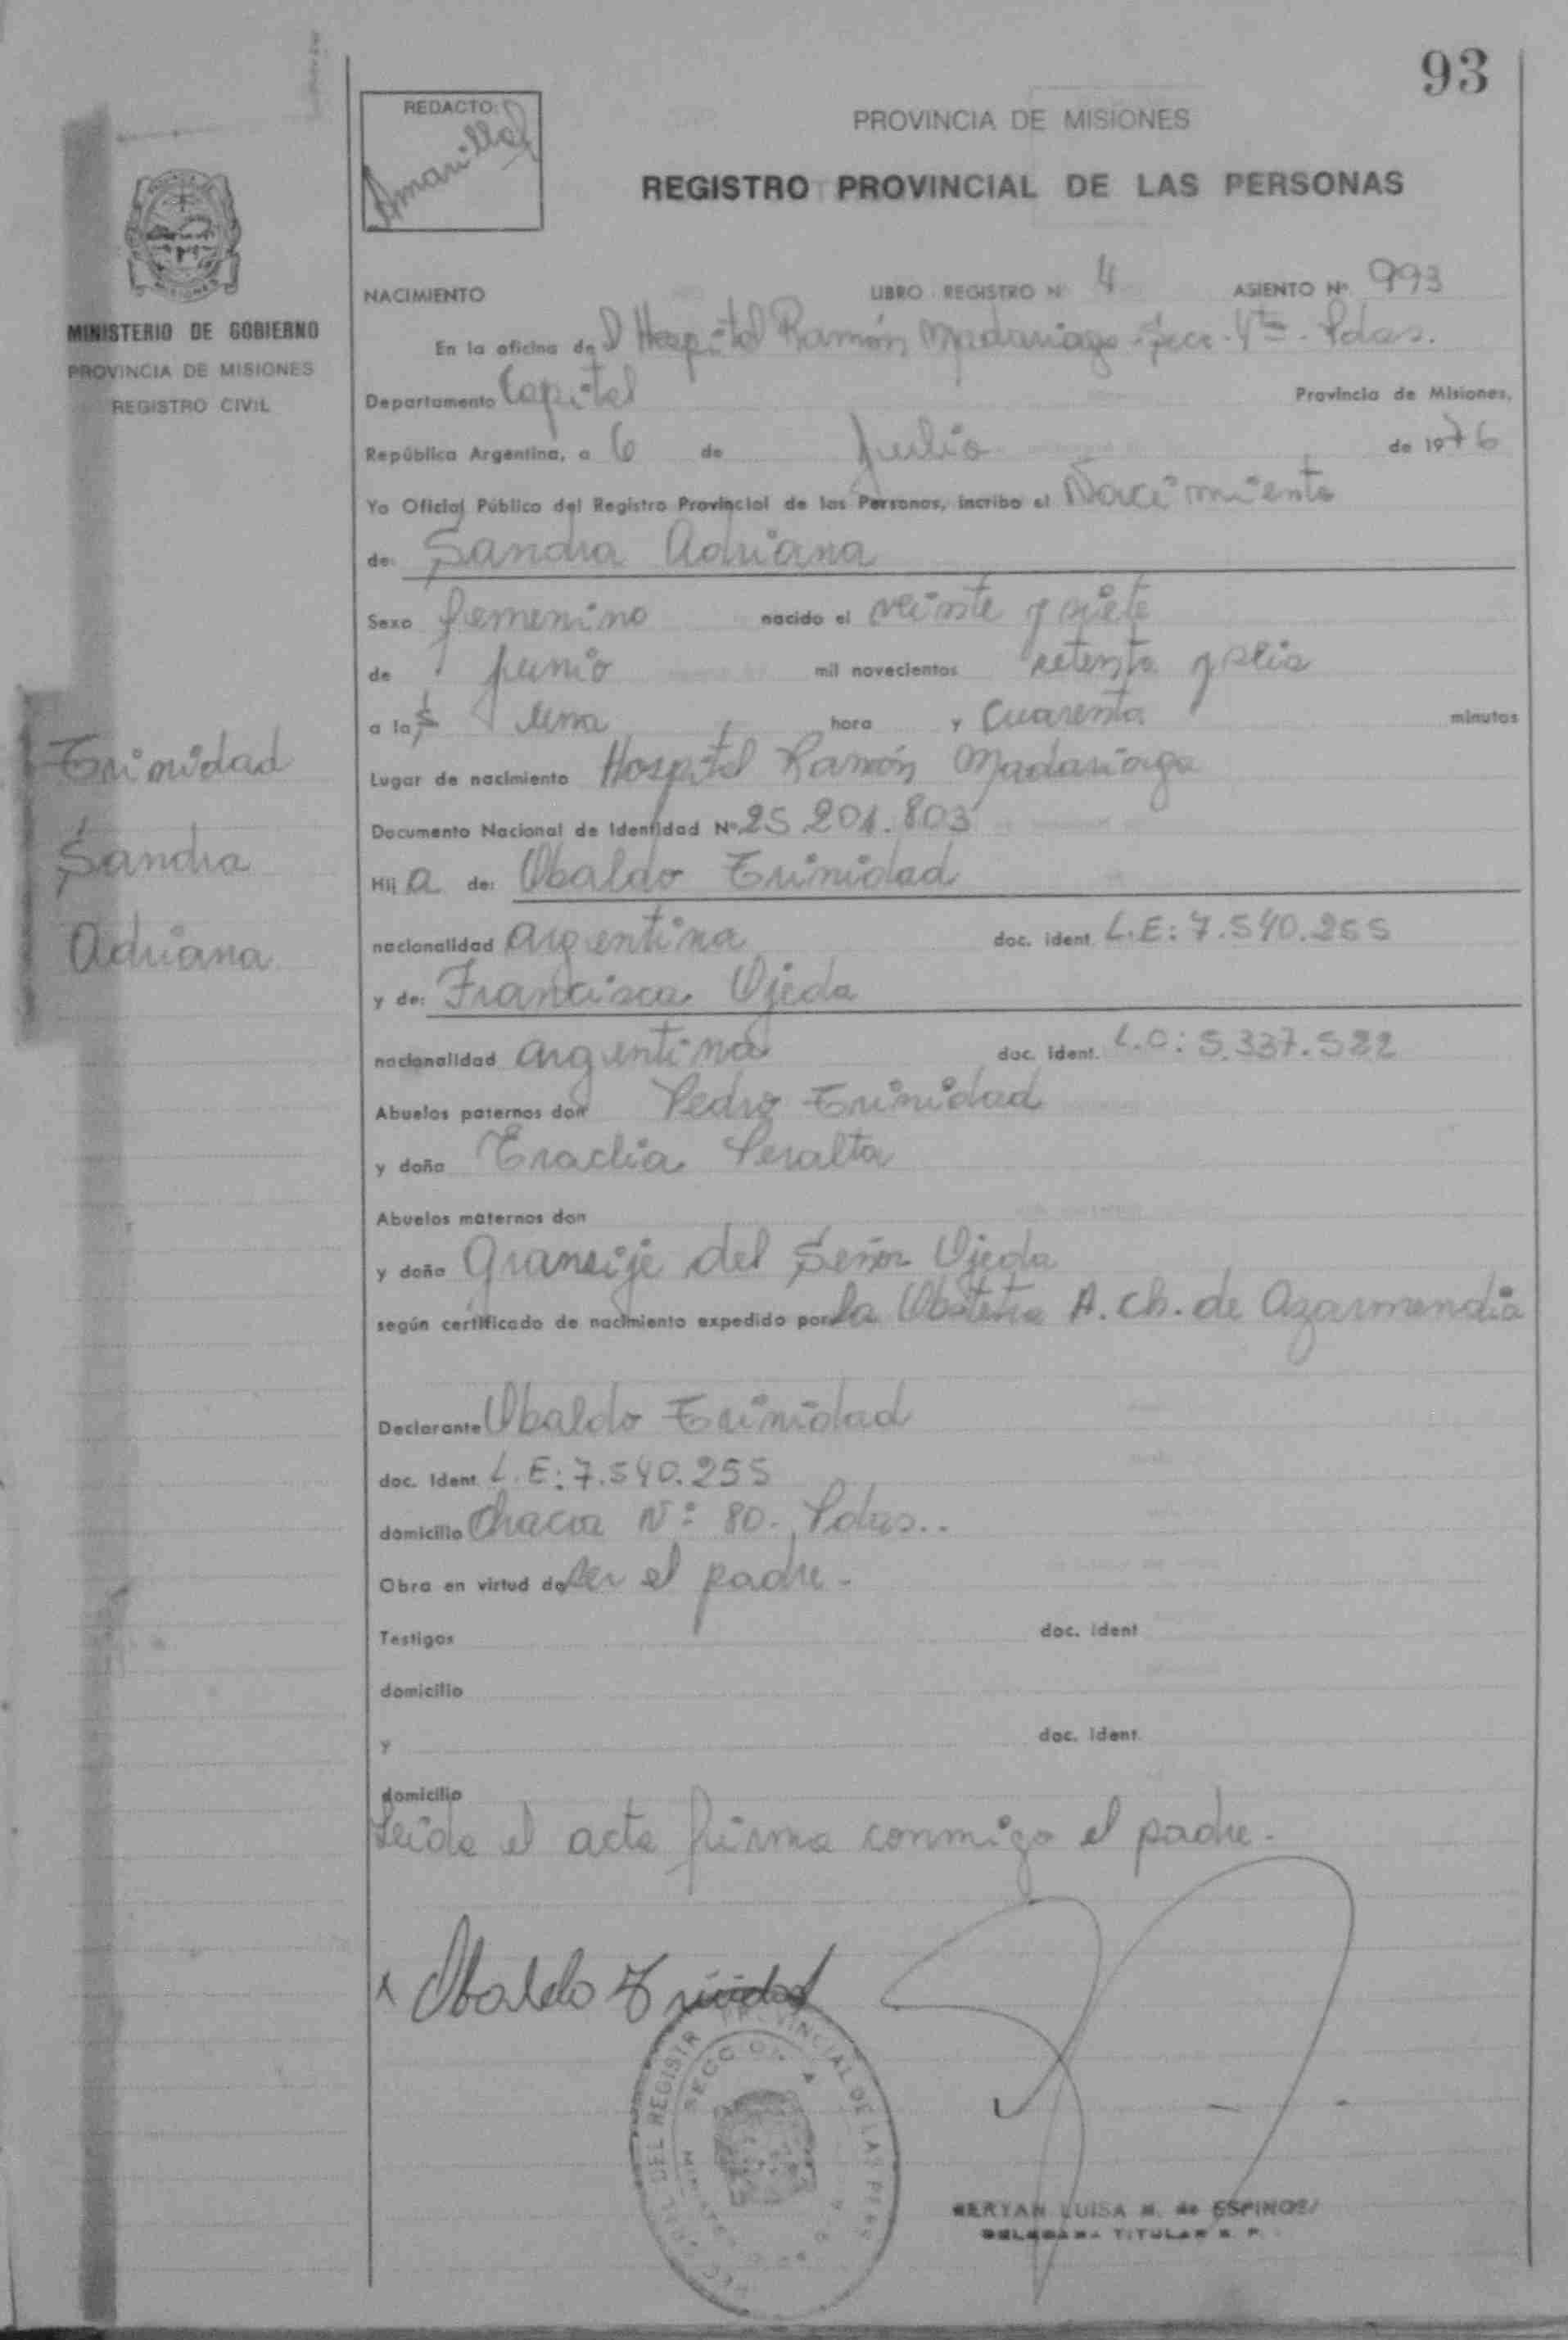 93
REDACTO:
Amarilla
PROVINCIA DE MISIONES
REGISTRO PROVINCIAL DE LAS PERSONAS
MINISTERIO DE GOBIERNO
PROVINCIA DE MISIONES
REGISTRO CIVIL
NACIMIENTO LIBRO REGISTRO Nº 4 ASIENTO Nº 993
En la oficina de l Hospital Ramón Madariaga Secc. 4ta. Pdas.
Departamento Capital Provincia de Misiones,
República Argentina, a 6 de Julio de 1976
Yo Oficial Público del Registro Provincial de las Personas, incribo el Nacimiento
de: Sandra Adriana
Sexo femenino nacido el veinte y siete
de junio mil novecientos setenta y seis
a las una hora y cuarenta minutos
Lugar de nacimiento Hospital Ramón Madariaga
Documento Nacional de Identidad Nº 25.201.803
Trinidad
Sandra
Adriana
Hij a de: Ubaldo Trinidad
nacionalidad argentina doc. ident. L.E: 7.540.255
y de: Francisca Ojeda
nacionalidad argentina doc. ident. L.C: 5.337.522
Abuelos paternos don Pedro Trinidad
y doña Eraclia Peralta
Abuelos maternos don
y doña del Señor Ojeda
según certificado de nacimiento expedido por la Obstetra A. Ch. de Azarmendia
Declarante Ubaldo Trinidad
doc. Ident. L.E: 7.540.255
domicilio Chacra Nº 80. Pdas..
Obra en virtud de ser el padre.
Testigos doc. ident
domicilio
y doc. ident.
domicilio
Leída el acta firma conmigo el padre.
x Ubaldo Trinidad
DEL REGISTRO PROVINCIAL DE LAS PERS
SECCION 4
LUISA M. de ESPINOSA
DELEGADA TITULAR R. P.